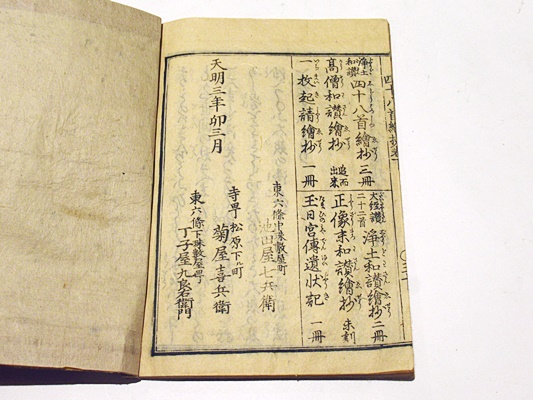 浄土和讃四十八首繪抄 三冊
高僧和讃繪抄 追而出来
一枚起請繪抄 一冊
大經讃二十二首 淨土和讃繪抄 二冊
正像末和讃繪抄 未刻
玉日宮傳遺状記 一冊
天明三年卯三月
東六條中珠數屋町
池田屋七兵衛
寺町松原下町
菊屋喜兵衛
東六條下珠數屋町
丁子屋九郎右衛門